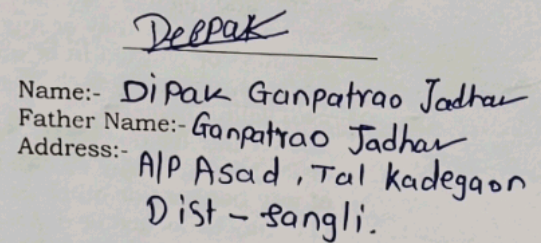 Deepak
Name:- Dipak Ganpatrao Jadhav
Father Name:- Ganpatrao Jadhav
Address:- A/P Asad, Tal Kadegaon
Dist - Sangli.